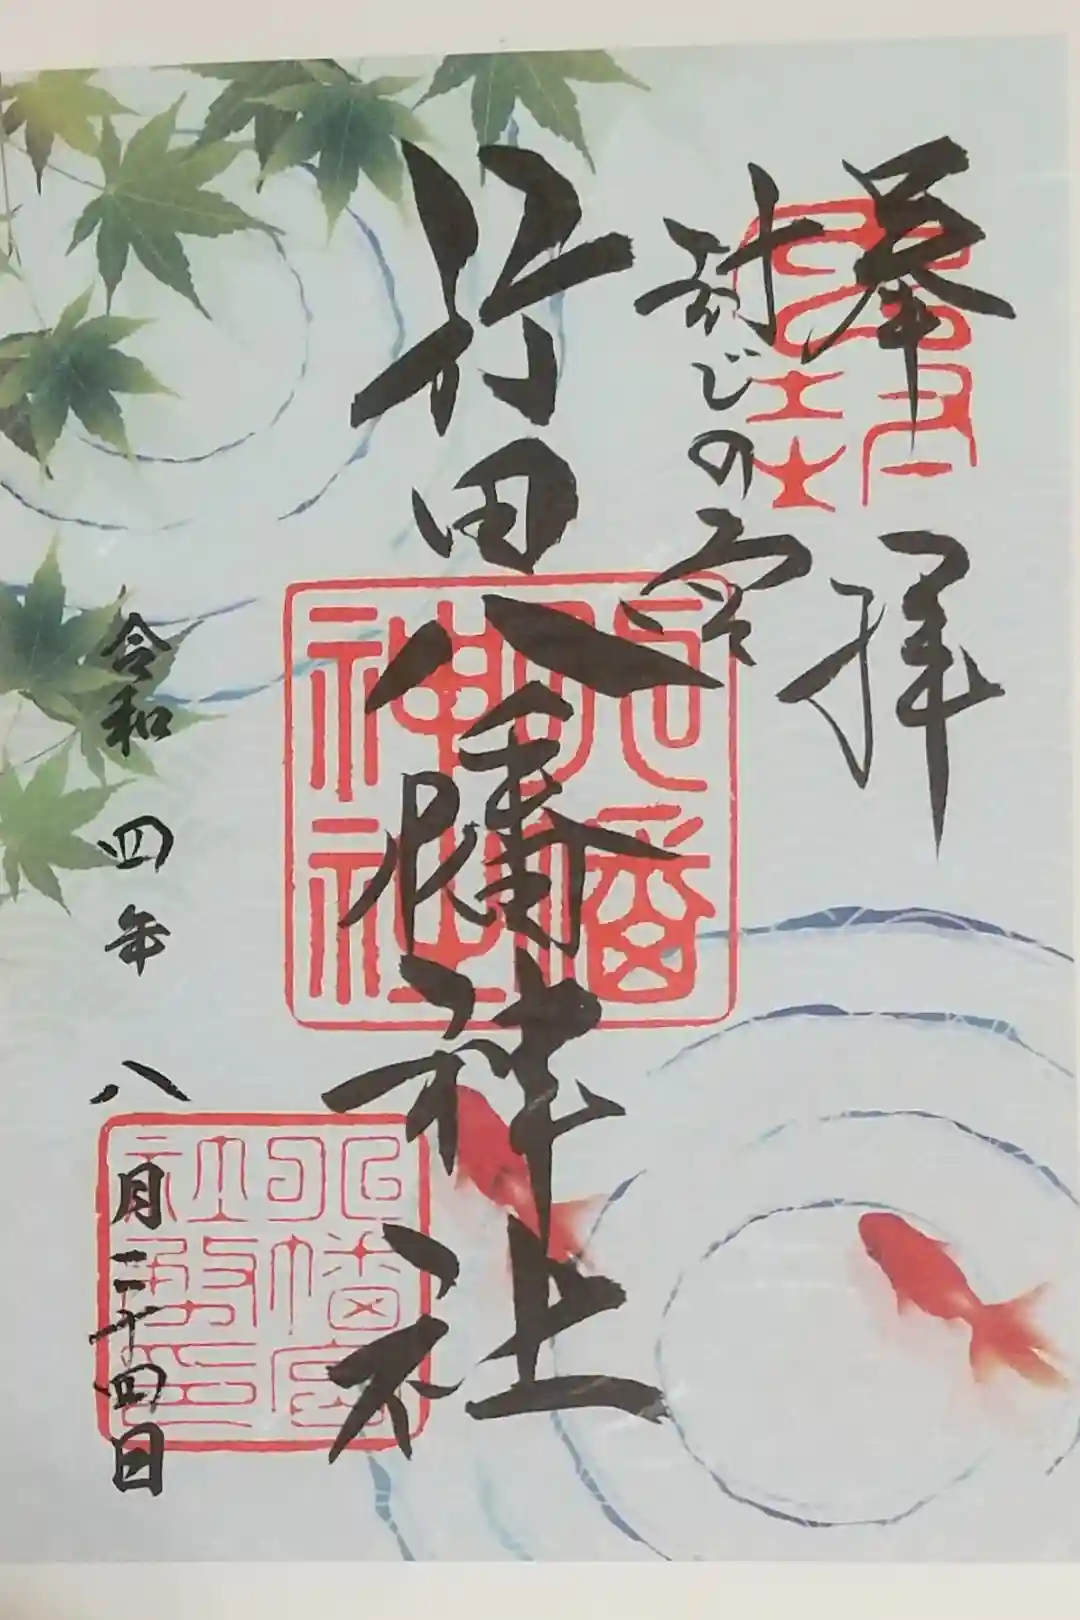 奉拝
封じの宮
行田八幡神社
八幡
神社
令和四年八月二十四日
八幡宮
社務印